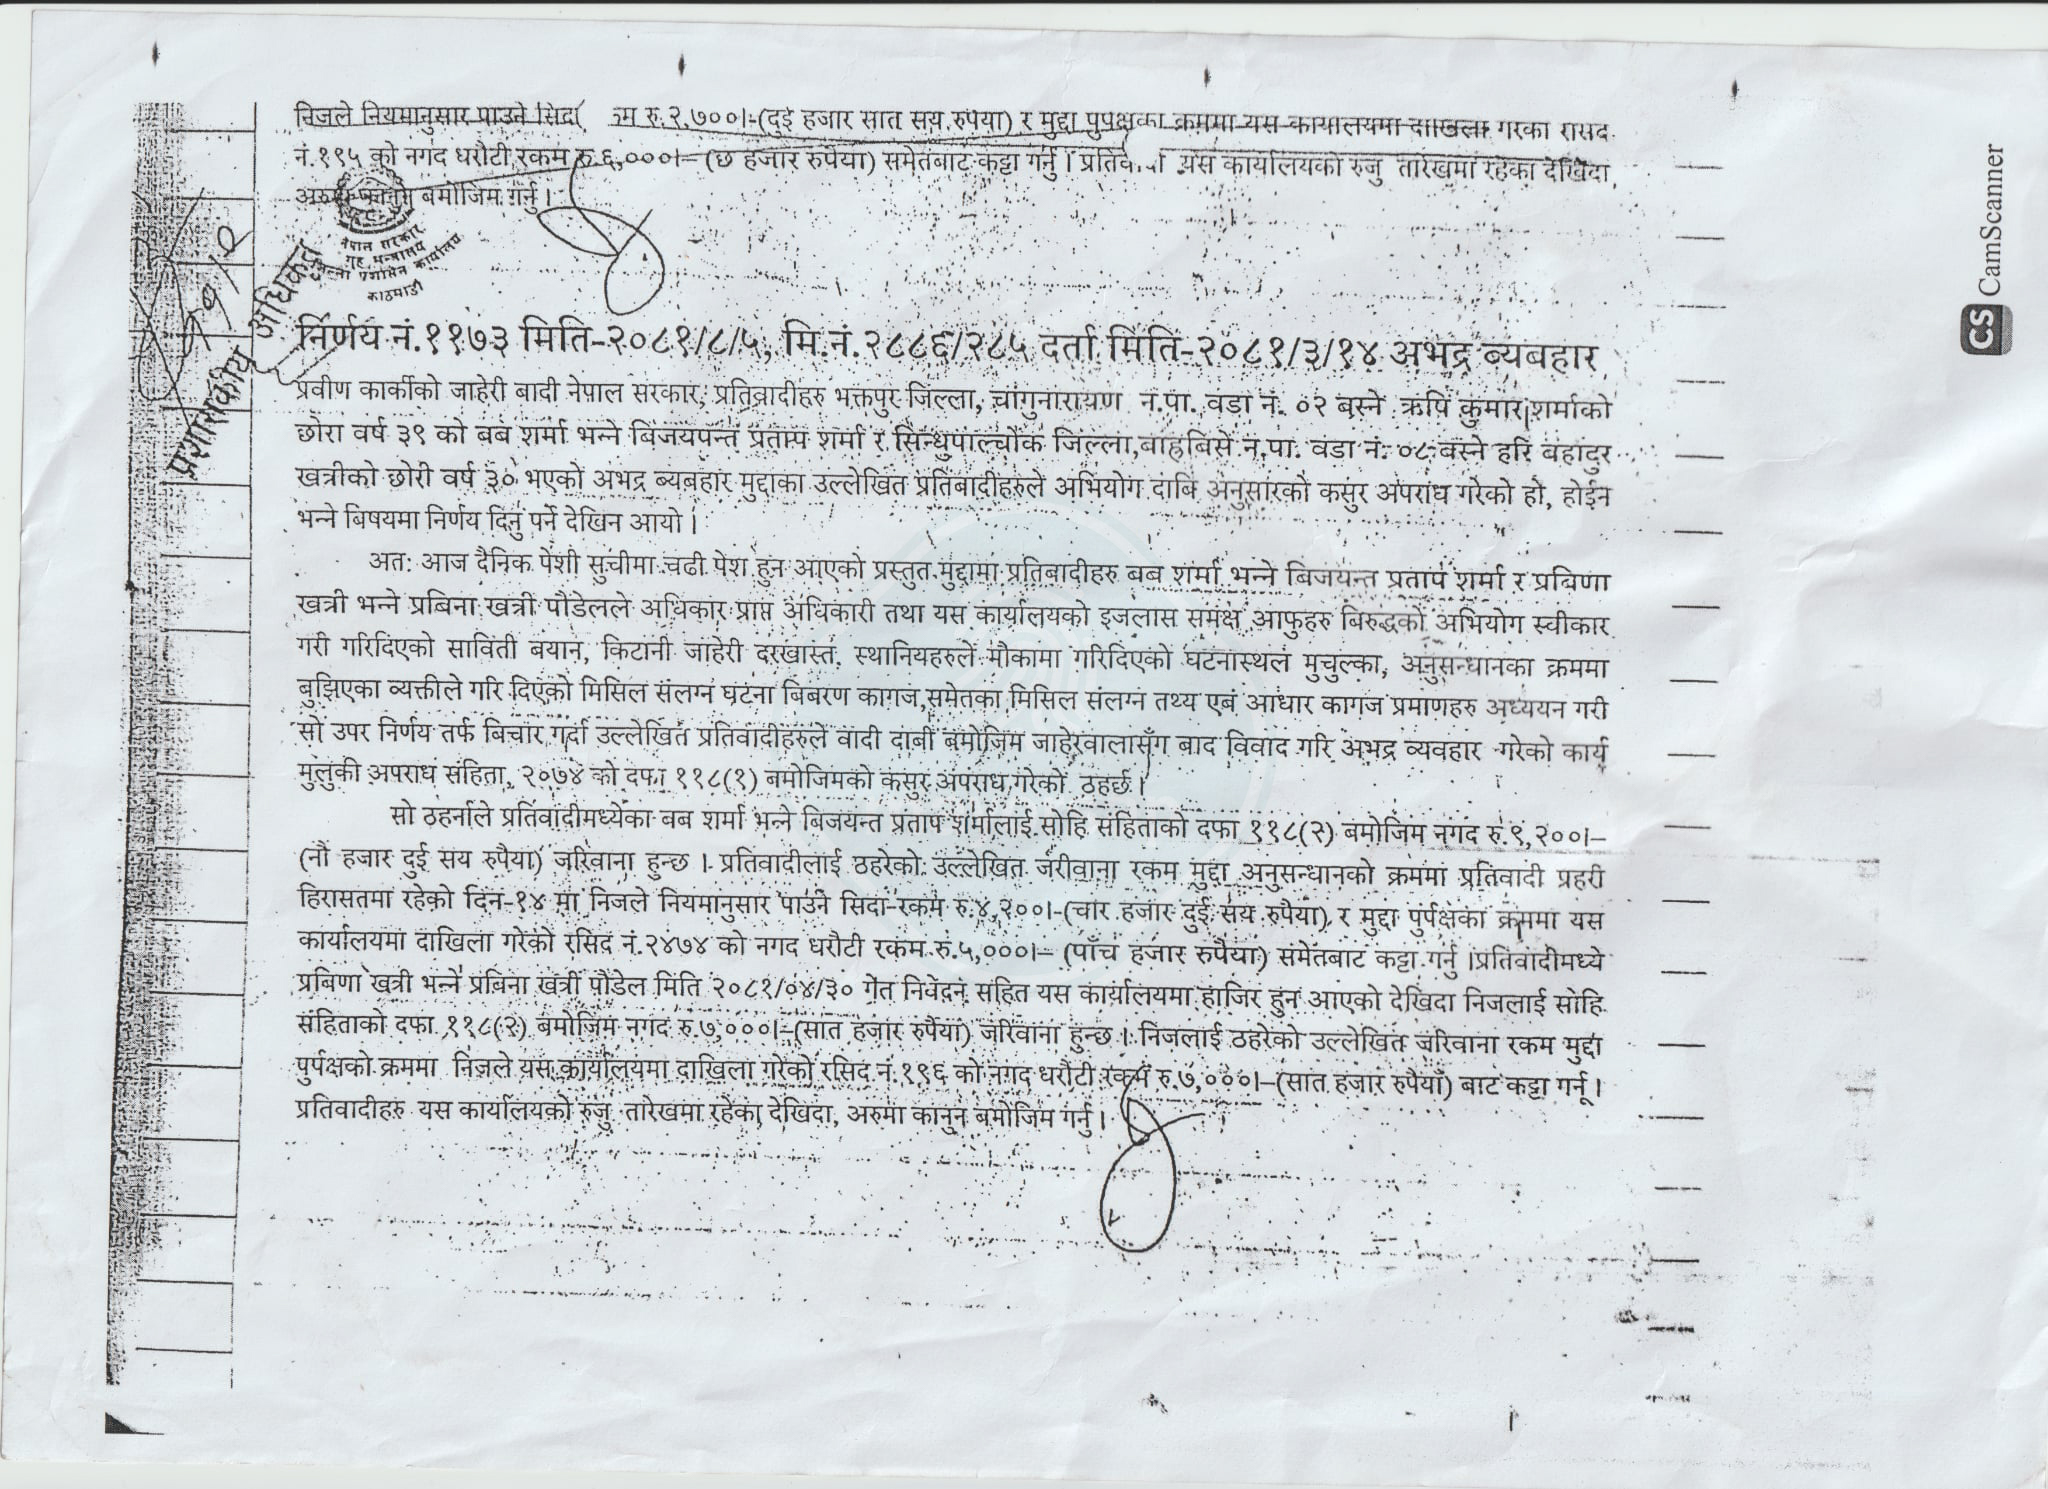 निजले नियमानुसार पाउने सिदा रु.२,७००।-(दुई हजार सात सय रुपैया) र मुद्दा पुपक्षका क्रममा यस कार्यालयमा दाखिला गरेका रसिद
नं.१९५ को नगद धरौटी रकम रु.६,०००।– (छ हजार रुपैया) समेतबाट कट्टा गर्नु । यस कार्यालयको रुजु तारेखमा रहेका देखिदा,
बमोजिम गर्नु ।
नेपाल सरकार
गृह मन्त्रालय
जिल्ला प्रशासन कार्यालय
काठमाडौं
प्रशासकीय अधिकृत
निर्णय नं.११७३ मिति-२०८१/८/५, मि.नं.२८८६/२८५ दर्ता मिति-२०८१/३/१४ अभद्र ब्यबहार
प्रवीण कार्कीको जाहेरी बादी नेपाल सरकार, प्रतिवादीहरु भक्तपुर जिल्ला, चांगुनारायण न.पा. वडा नं. ०२ बस्ने ऋषि कुमार शर्माको
छोरा वर्ष ३९ को बब शर्मा भन्ने बिजयपन्त प्रताप शर्मा र सिन्धुपाल्चोक जिल्ला,बाह्रबिसे न.पा. वडा नं. ०८ बस्ने हरि बहादुर
खत्रीको छोरी वर्ष ३० भएको अभद्र ब्यबहार मुद्दाका उल्लेखित प्रतिबादीहरुले अभियोग दाबि अनुसारको कसुर अपराध गरेको हो, होईन
भन्ने बिषयमा निर्णय दिनु पर्ने देखिन आयो ।
अत: आज दैनिक पेशी सुचीमा चढी पेश हुन आएको प्रस्तुत मुद्दामा प्रतिबादीहरु बब शर्मा भन्ने बिजयन्त प्रताप शर्मा र प्रबिणा
खत्री भन्ने प्रबिना खत्री पौडेलले अधिकार प्राप्त अधिकारी तथा यस कार्यालयको इजलास समक्ष आफुहरु बिरुद्धको अभियोग स्वीकार
गरी गरिदिएको साविती बयान, किटानी जाहेरी दरखास्त, स्थानियहरुले मौकामा गरिदिएको घटनास्थल मुचुल्का, अनुसन्धानका क्रममा
बुझिएका व्यक्तीले गरि दिएको मिसिल संलग्न घटना बिबरण कागज,समेतका मिसिल संलग्न तथ्य एबं आधार कागज प्रमाणहरु अध्ययन गरी
सो उपर निर्णय तर्फ बिचार गर्दा उल्लेखित प्रतिवादीहरुले वादी दाबी बमोजिम जाहेरवालासँग बाद विवाद गरि अभद्र व्यवहार गरेको कार्य
मुलुकी अपराध संहिता, २०७४ को दफा ११८(१) बमोजिमको कसुर अपराध गरेको ठहर्छ ।
सो ठहर्नाले प्रतिवादीमध्येका बब शर्मा भन्ने बिजयन्त प्रताप शर्मालाई सोहि संहिताको दफा ११८(२) बमोजिम नगद रु.९,२००।–
(नौ हजार दुई सय रुपैया) जरिवाना हुन्छ । प्रतिवादीलाई ठहरेको उल्लेखित जरीवाना रकम मुद्दा अनुसन्धानको क्रममा प्रतिवादी प्रहरी
हिरासतमा रहेको दिन-१४ मा निजले नियमानुसार पाउने सिदा रकम रु.४,२००।-(चार हजार दुई सय रुपैया) र मुद्दा पुर्पक्षका क्रममा यस
कार्यालयमा दाखिला गरेको रसिद नं.२४७४ को नगद धरौटी रकम रु.५,०००।– (पाँच हजार रुपैया) समेतबाट कट्टा गर्नु ।प्रतिवादीमध्ये
प्रबिणा खत्री भन्ने प्रबिना खत्री पौडेल मिति २०८१/०४/३० गते निवेदन सहित यस कार्यालयमा हाजिर हुन आएको देखिदा निजलाई सोहि
संहिताको दफा ११८(२) बमोजिम नगद रु.७,०००।–(सात हजार रुपैया) जरिवाना हुन्छ । निजलाई ठहरेको उल्लेखित जरिवाना रकम मुद्दा
पुर्पक्षको क्रममा निजले यस कार्यालयमा दाखिला गरेको रसिद नं.१९६ को नगद धरौटी रकम रु.७,०००।–(सात हजार रुपैयाँ) बाट कट्टा गर्नू ।
प्रतिवादीहरु यस कार्यालयको रुजु तारेखमा रहेका देखिदा, अरुमा कानुन बमोजिम गर्नु ।
CS CamScanner